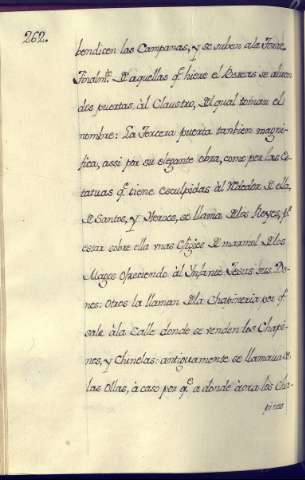 262.
bendicen las Campanas, y se suben a la Torre
Finalmte. De aquellas qe hiere el Boreas se abren
dos puertas àl Claustro, del qual toman el
nombre: La Tercera puerta tambien magni-
fica, assi por su elegante obra, como por las Es-
tatuas qe tiene esculpidas àl rededor de ella,
de Santos, y Heroes, se llama de los Reyes, pr
estar sobre ella unas efigies de marmol de los
Magos ofreciendo àl Infante Jesus sus Do-
nes: Otros la llaman de la Chapineria por qe
sale à la Calle donde se venden los Chapi-
nes, y Chinelas: antiguamente se llamava de
las Ollas, à caso por qe a donde àora los Cha-
pines